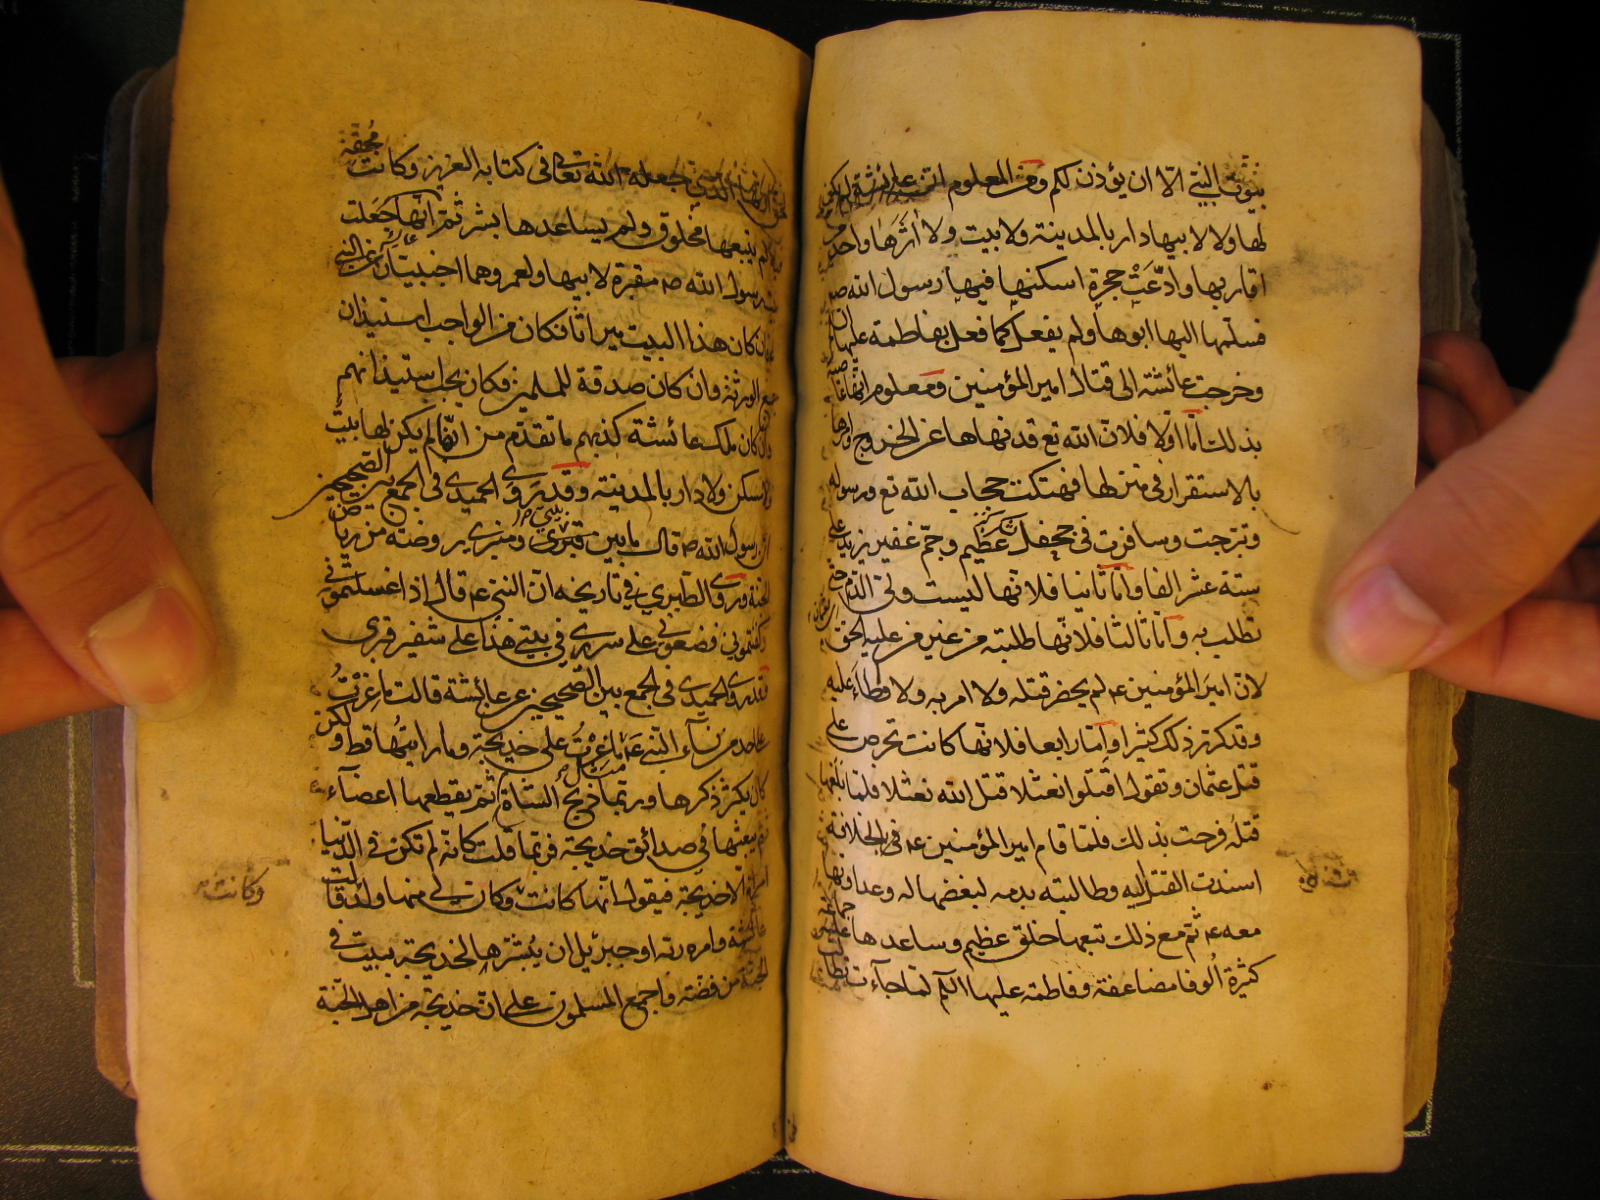 بيوت النبي الا ان يؤذن لكم ومن المعلوم ان عائشة لم يكن
لها ولا لابيها دار بالمدينة ولا بيت ولا اثرها واحد من
اقاربها وادّعَتْ حجرة اسكنها فيها رسول الله ص
فسلّمها اليها ابوها ولم يفعل كما فعل بفاطمة عليها
وخرجت عائشة الى قتال امير المؤمنين ومعلوم انّها عاصية
بذلك امّا اولا فلانّ الله تع قد نهاها عن الخروج وامرها
بالاستقرار في منزلها فهتكت حجاب الله تع ورسوله
وتبرّجت وسافرت في جحفل عظيم وجمّ غفير يزيد على
ستة عشر الفا وامّا ثانيا فلانّها ليست ولىّ الدّم حتى
تطلب به وامّا ثالثا فلانّها طلبته من غير من عليه الحقّ
لانّ اميرَ المؤمنين ع لم يحضر قتله ولا امر به ولا واطاء عليه
وقد ذكرت ذلك كثيرا وامّا رابعا فلانّها كانت تحرص على
قتل عثمان وتقول اقتلوا نعثلا قتل الله نعثلا فلمّا بلغها
قتلَه فرحت بذلك فلمّا قام امير المؤمنين ع في الخلافة
اسندت القتل اليه وطالبته بدمه لبغضها له وعداوتها
معه ع ثمّ مع ذلك تبعها خلق عظيم وساعدها عليه جماعة
كثيرة اُلوفا مضاعفة وفاطمة عليها السّلم لمّا جاءت تطالب
الذي جعله الله تعالى في كتابه العزيز وكانت مُحِقّة
لم يتبعها مخلوق ولم يساعدها بشر ثمّ انّها جَعلت
بيت رسول الله ص مقبرة لابيها ولعمر وهما اجنبيّان عن النبي
فان كان هذا البيت ميراثا فكان من الواجب استيذان
جميع الورثة وان كان صدقة للمسلمين فكان يجب استيذانهم
وان كان ملك عائشة كذبهم ما تقدّم من انّها لم يكن لها بيت
ولا مسكن ولا دار بالمدينة وقد رَوى الحميدي في الجمع بين الصّحيحين
انّ رسول الله ص قال ما بين بيتي ومنبري روضة من رياض
الجنة وروى الطّبري في تاريخه انّ النبي ع قال اذا غسلتموني
وكفنتموني فضعوني على سريري في بيتي هذا على شفير قبري
وقد روى الحميدي في الجمع بين الصّحيحين عن عائشة قالت ما غِرْتُ
على احد من نساء النبي ع ما غِرْتُ على خديجة وما رايتُها قط ولكن
كان يكثر ذكرها وربّما ذبح الشّاة ثمّ يقطعها اعضآء
ثم يبعثها في صدائق خديجة فربّما قلت كانّه لم تكن في الدّنيا
امراة الا خديجة فيقول انّها كانت وكانت وكان لي منها ولد قالت
عائشة وامره ربّه او جبرئيل ان يُبشّرها لخديجة ببيت في
الجنّة من فضة واجمع المسلمون على انّ خديجة من اهل الجنّة
وكانت